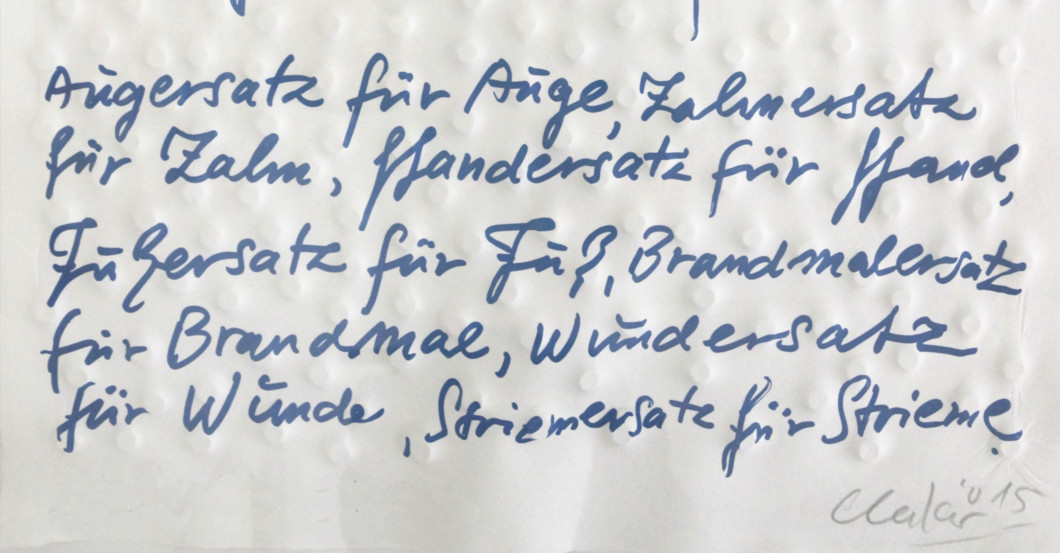 Augersatz für Auge, Zahnersatz
für Zahn, Handersatz für Hand,
Fußersatz für Fuß, Brandmalersatz
für Brandmal, Wundersatz
für Wunde, Striemersatz für Strieme.
15